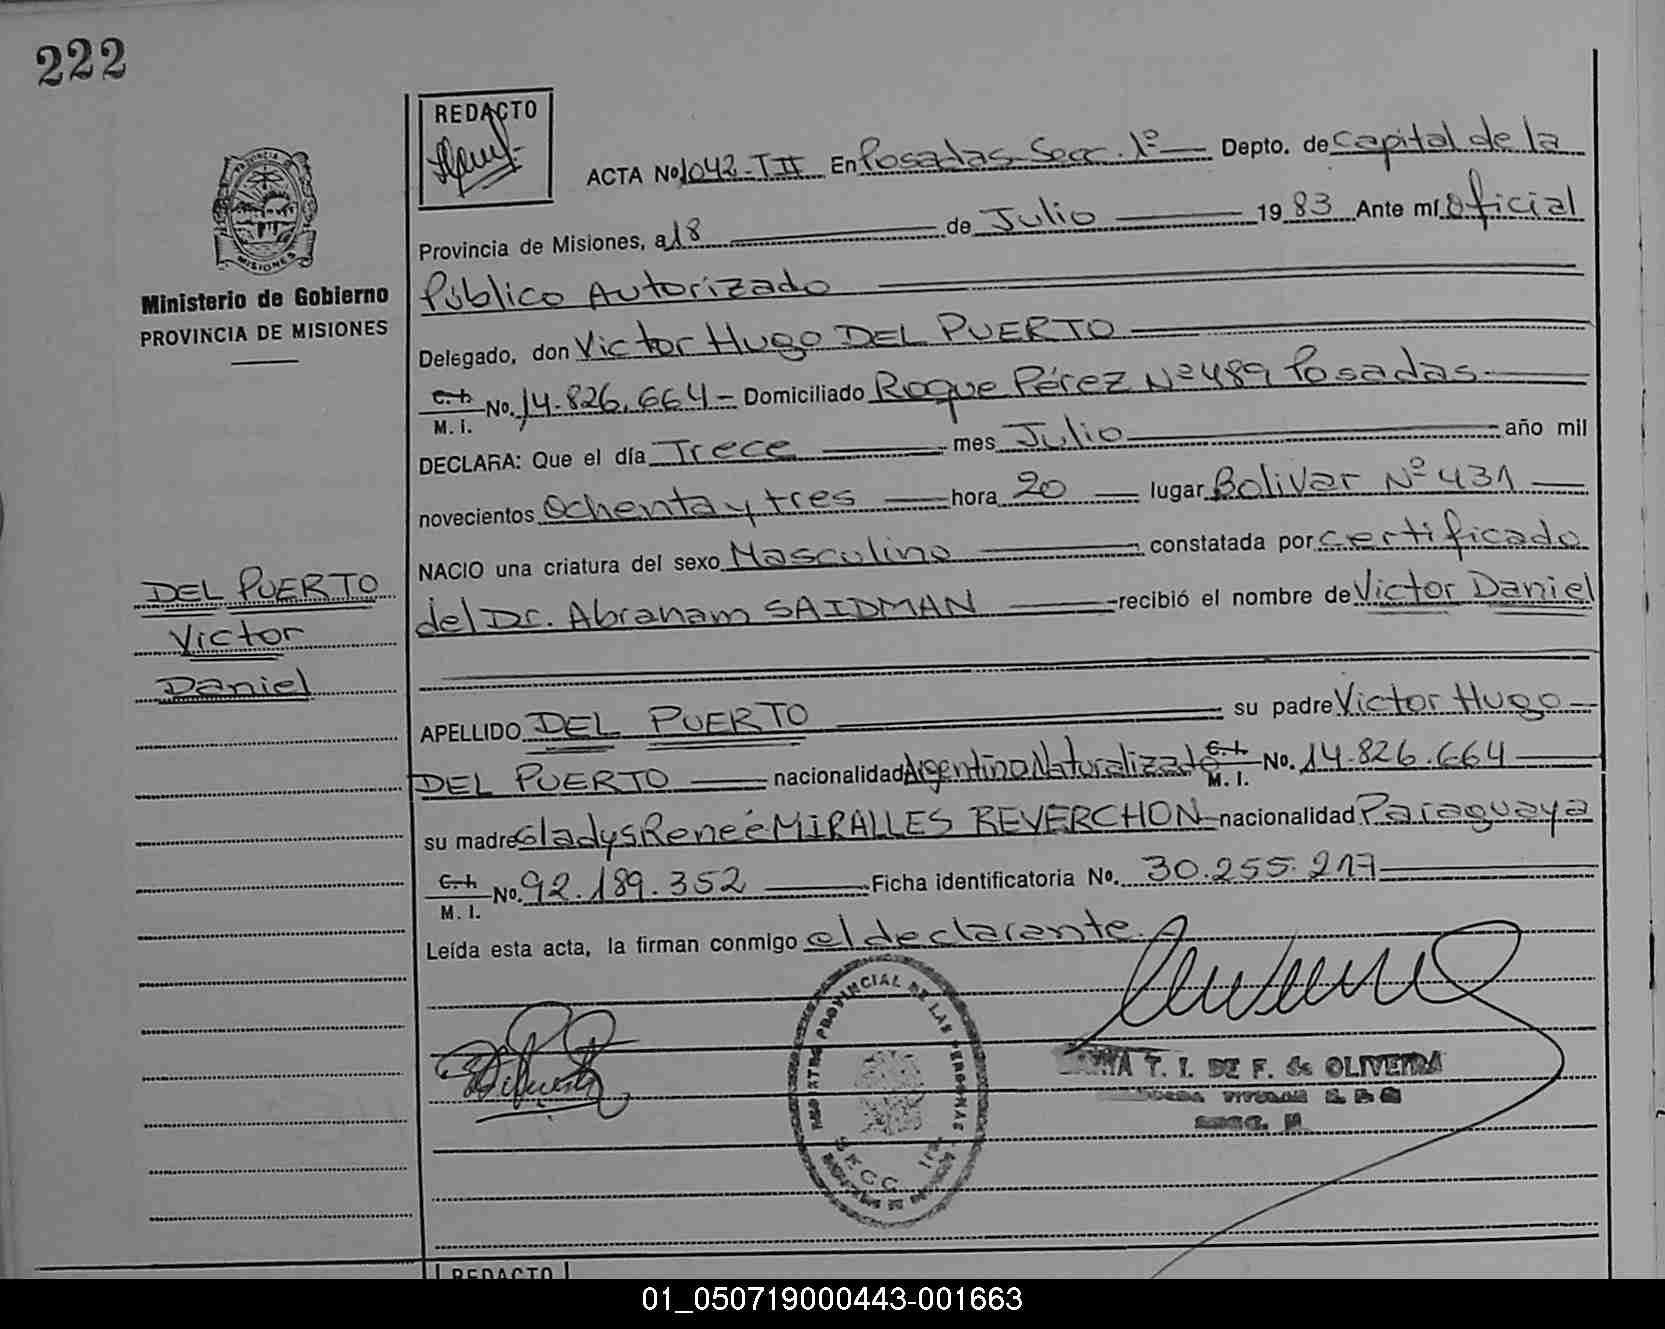 222
REDACTO
ACTA No 1042-T II En Posadas Secc. 1º Depto. de Capital de la
Provincia de Misiones, a 18 de Julio 1983 Ante mí Oficial
Público Autorizado
Ministerio de Gobierno
PROVINCIA DE MISIONES
MISIONES
Delegado, don Victor Hugo DEL PUERTO
C.I.
M.I. No. 14.826.664- Domiciliado Roque Pérez Nº 489 Posadas
DECLARA: Que el día Trece mes Julio año mil
novecientos Ochenta y tres hora 20 lugar Bolivar Nº 431
NACIO una criatura del sexo Masculino constatada por certificado
del Dr. Abraham SAIDMAN recibió el nombre de Victor Daniel
DEL PUERTO
Victor
Daniel
APELLIDO DEL PUERTO su padre Victor Hugo
DEL PUERTO nacionalidad Argentino Naturalizado C.I. M.I. No. 14.826.664
su madre Gladys Reneé MIRALLES REVERCHON nacionalidad Paraguaya
C.I.
M.I. No. 92.189.352 Ficha identificatoria No. 30.255.217
Leída esta acta, la firman conmigo el declarante.
PROVINCIAL DE LAS PERSONAS
SECC. 1ra
T. I. DE F. de OLIVEIRA
REDACTO
01_050719000443-001663